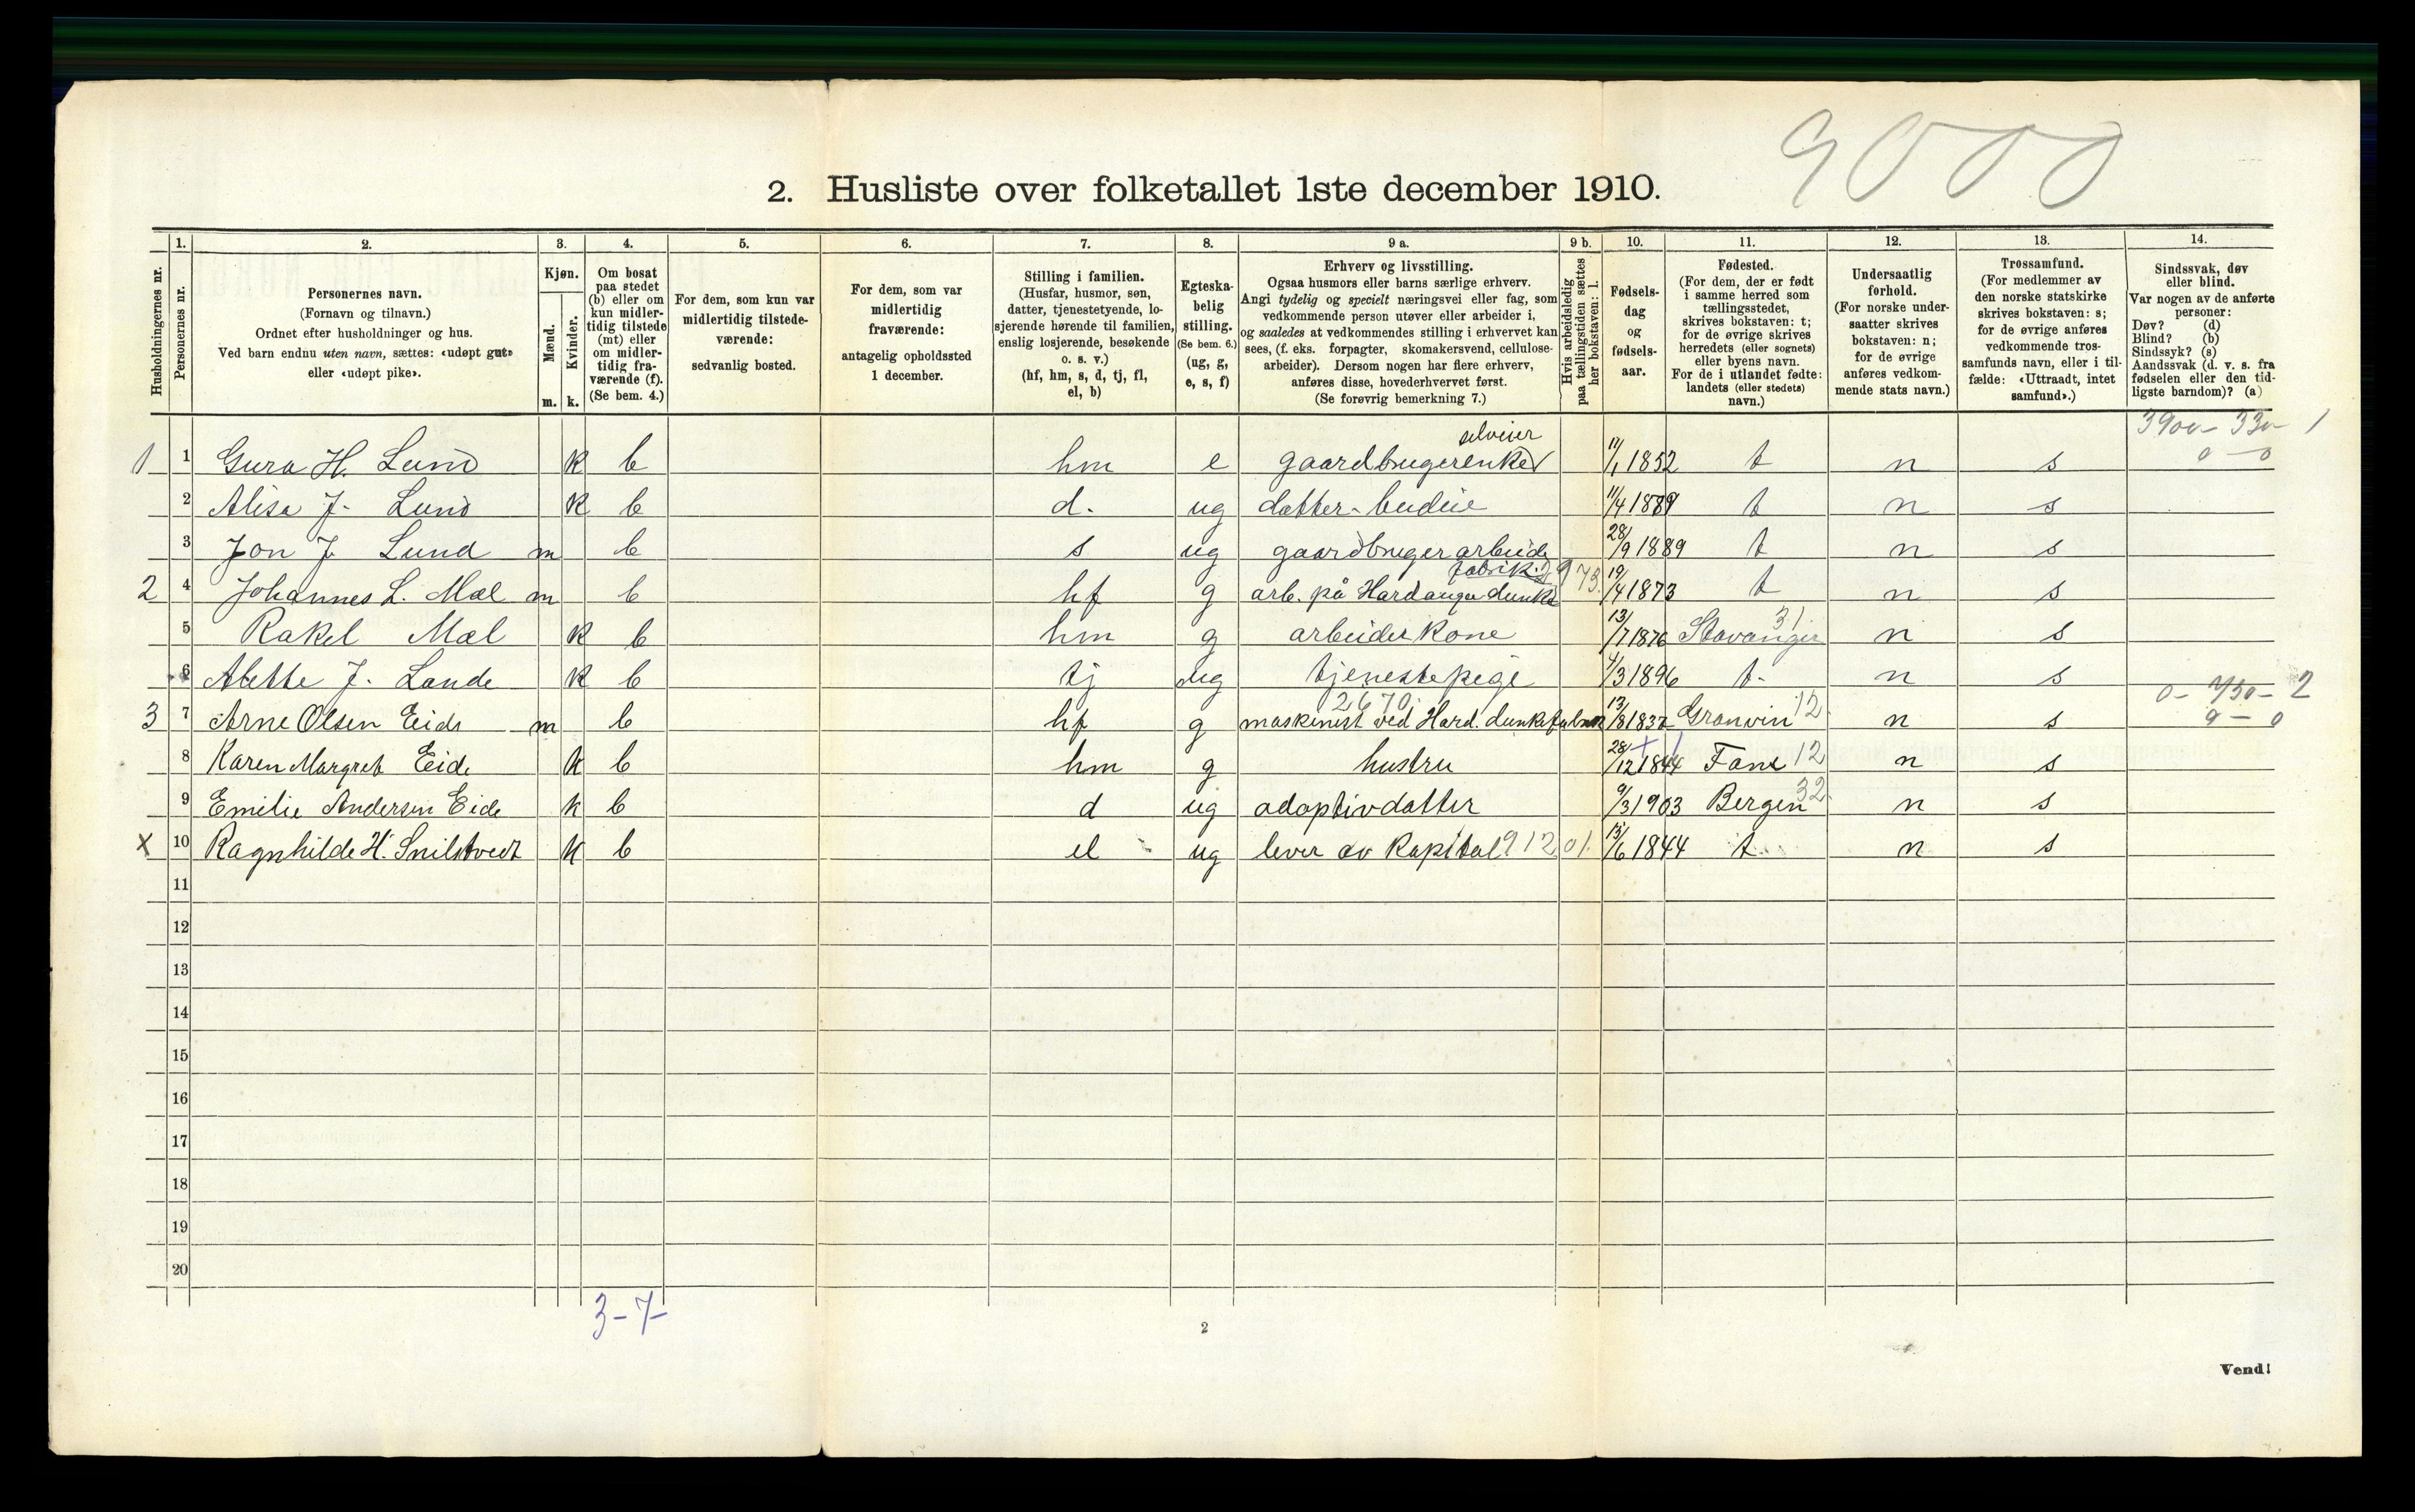 9000
2. Husliste over folketallet 1ste december 1910.
Husholdningernes nr.
1. Personernes nr.
2. Personernes navn. (Fornavn og tilnavn.) Ordnet efter husholdninger og hus. Ved barn endnu uten navn, sættes: «udøpt gut» eller «udøpt pike».
3. Kjøn. Mænd. m. Kvinder. k.
4. Om bosat paa stedet (b) eller om kun midlertidig tilstede (mt) eller om midlertidig fraværende (f). (Se bem. 4.)
5. For dem, som kun var midlertidig tilstedeværende: sedvanlig bosted.
6. For dem, som var midlertidig fraværende: antagelig opholdssted 1 december.
7. Stilling i familien. (Husfar, husmor, søn, datter, tjenestetyende, losjerende hørende til familien, enslig losjerende, besøkende o. s. v.) (hf, hm, s, d, tj, fl, el, b)
8. Egteskabelig stilling. (Se bem. 6.) (ug, g, e, s, f)
9 a. Erhverv og livsstilling. Ogsaa husmors eller barns særlige erhverv. Angi tydelig og specielt næringsvei eller fag, som vedkommende person utøver eller arbeider i, og saaledes at vedkommendes stilling i erhvervet kan sees, (f. eks. forpagter, skomakersvend, cellulosearbeider). Dersom nogen har flere erhverv, anføres disse, hovederhvervet først. (Se forøvrig bemerkning 7.)
9 b. Hvis arbeidsledig paa tællingstiden sættes her bokstaven: l.
10. Fødselsdag og fødselsaar.
11. Fødested. (For dem, der er født i samme herred som tællingsstedet, skrives bokstaven: t; for de øvrige skrives herredets (eller sognets) eller byens navn. For de i utlandet fødte: landets (eller stedets) navn.)
12. Undersaatlig forhold. (For norske undersaatter skrives bokstaven: n; for de øvrige anføres vedkommende stats navn.)
13. Trossamfund. (For medlemmer av den norske statskirke skrives bokstaven: s; for de øvrige anføres vedkommende trossamfunds navn, eller i tilfælde: «Uttraadt, intet samfund».)
14. Sindssvak, døv eller blind. Var nogen av de anførte personer: Døv? (d) Blind? (b) Sindssyk? (s) Aandssvak (d. v. s. fra fødselen eller den tidligste barndom)? (a)
3900- 330- 1
0 - 0
selveier
1 1 Gura H. Lund k b hm e gaardbrugerenke 1852 t n s
2 Alisa J. Lund k b d. ug datter- budeie 11/4 1889 t n s
3 Jon J. Lund m b s ug gaardbrugerarbeide 28/9 1889 t n s
fabrik.
2 4 Johannes L. Mæl m b hf g arb. på Hardanger dunke 19/4 1873 t n s
5 Rakel Mæl k b hm g arbeider kone 13/7 1876 Stavanger 31 n s
6 Alette J. Lande k b tj ug tjenestepige 4/3 1896 t. n s
2670
0 - - 2
3 7 Arne Olsen Eide m b hf g maskinist ved Hard. dunkefabrik 13/8 1837 Granvin 12 n s
8 Karen Margret Eide k b hm g hustru 28/12 1844 Fane 12 n s
9 Emilie Andersen Eide k b d ug adoptivdatter 9/3 1903 Bergen 32 n s
x 10 Ragnhilde H. Snilstveit k b el ug lever av kapital 912 01 13/6 1844 t n s
11
12
13
14
15
16
17
18
19
20
3-7-
2
Vend!